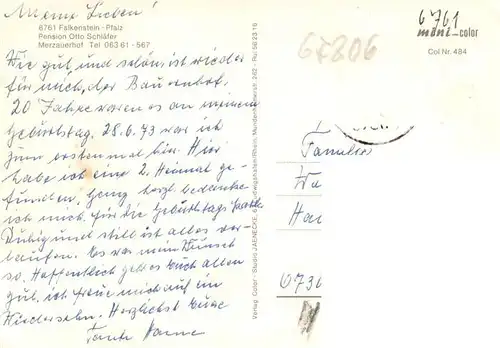 Meine Lieben!
6761 Falkenstein - Pfalz
Pension Otto Schläfer
Merzauerhof Tel 063 61 - 567
Wie gut und schön ist wieder
für mich, der Bauernhof.
20 Jahre waren es an meinem
Geburtstag. 28.6.73 war ich
zum erstenmal hier. Hier
habe ich eine 2. Heimat ge-
funden. Ganz herzl. bedanke
ich mich für die Geburtstags
Ruhig und still ist alles ver-
laufen. Es war mein Wunsch
so. Hoffentlich geht es Euch allen
gut, ich freue mich auf ein
Wiedersehn. Herzlichst Eure
Tante
Verlag Color-Studio JAENECKE, Ludwigshafen/Rhein, Mundenheimerstr. 262 - Ruf 56 23 16
6761
mini-color
Col Nr. 484
67806
Familie
Wa
Ha
0730